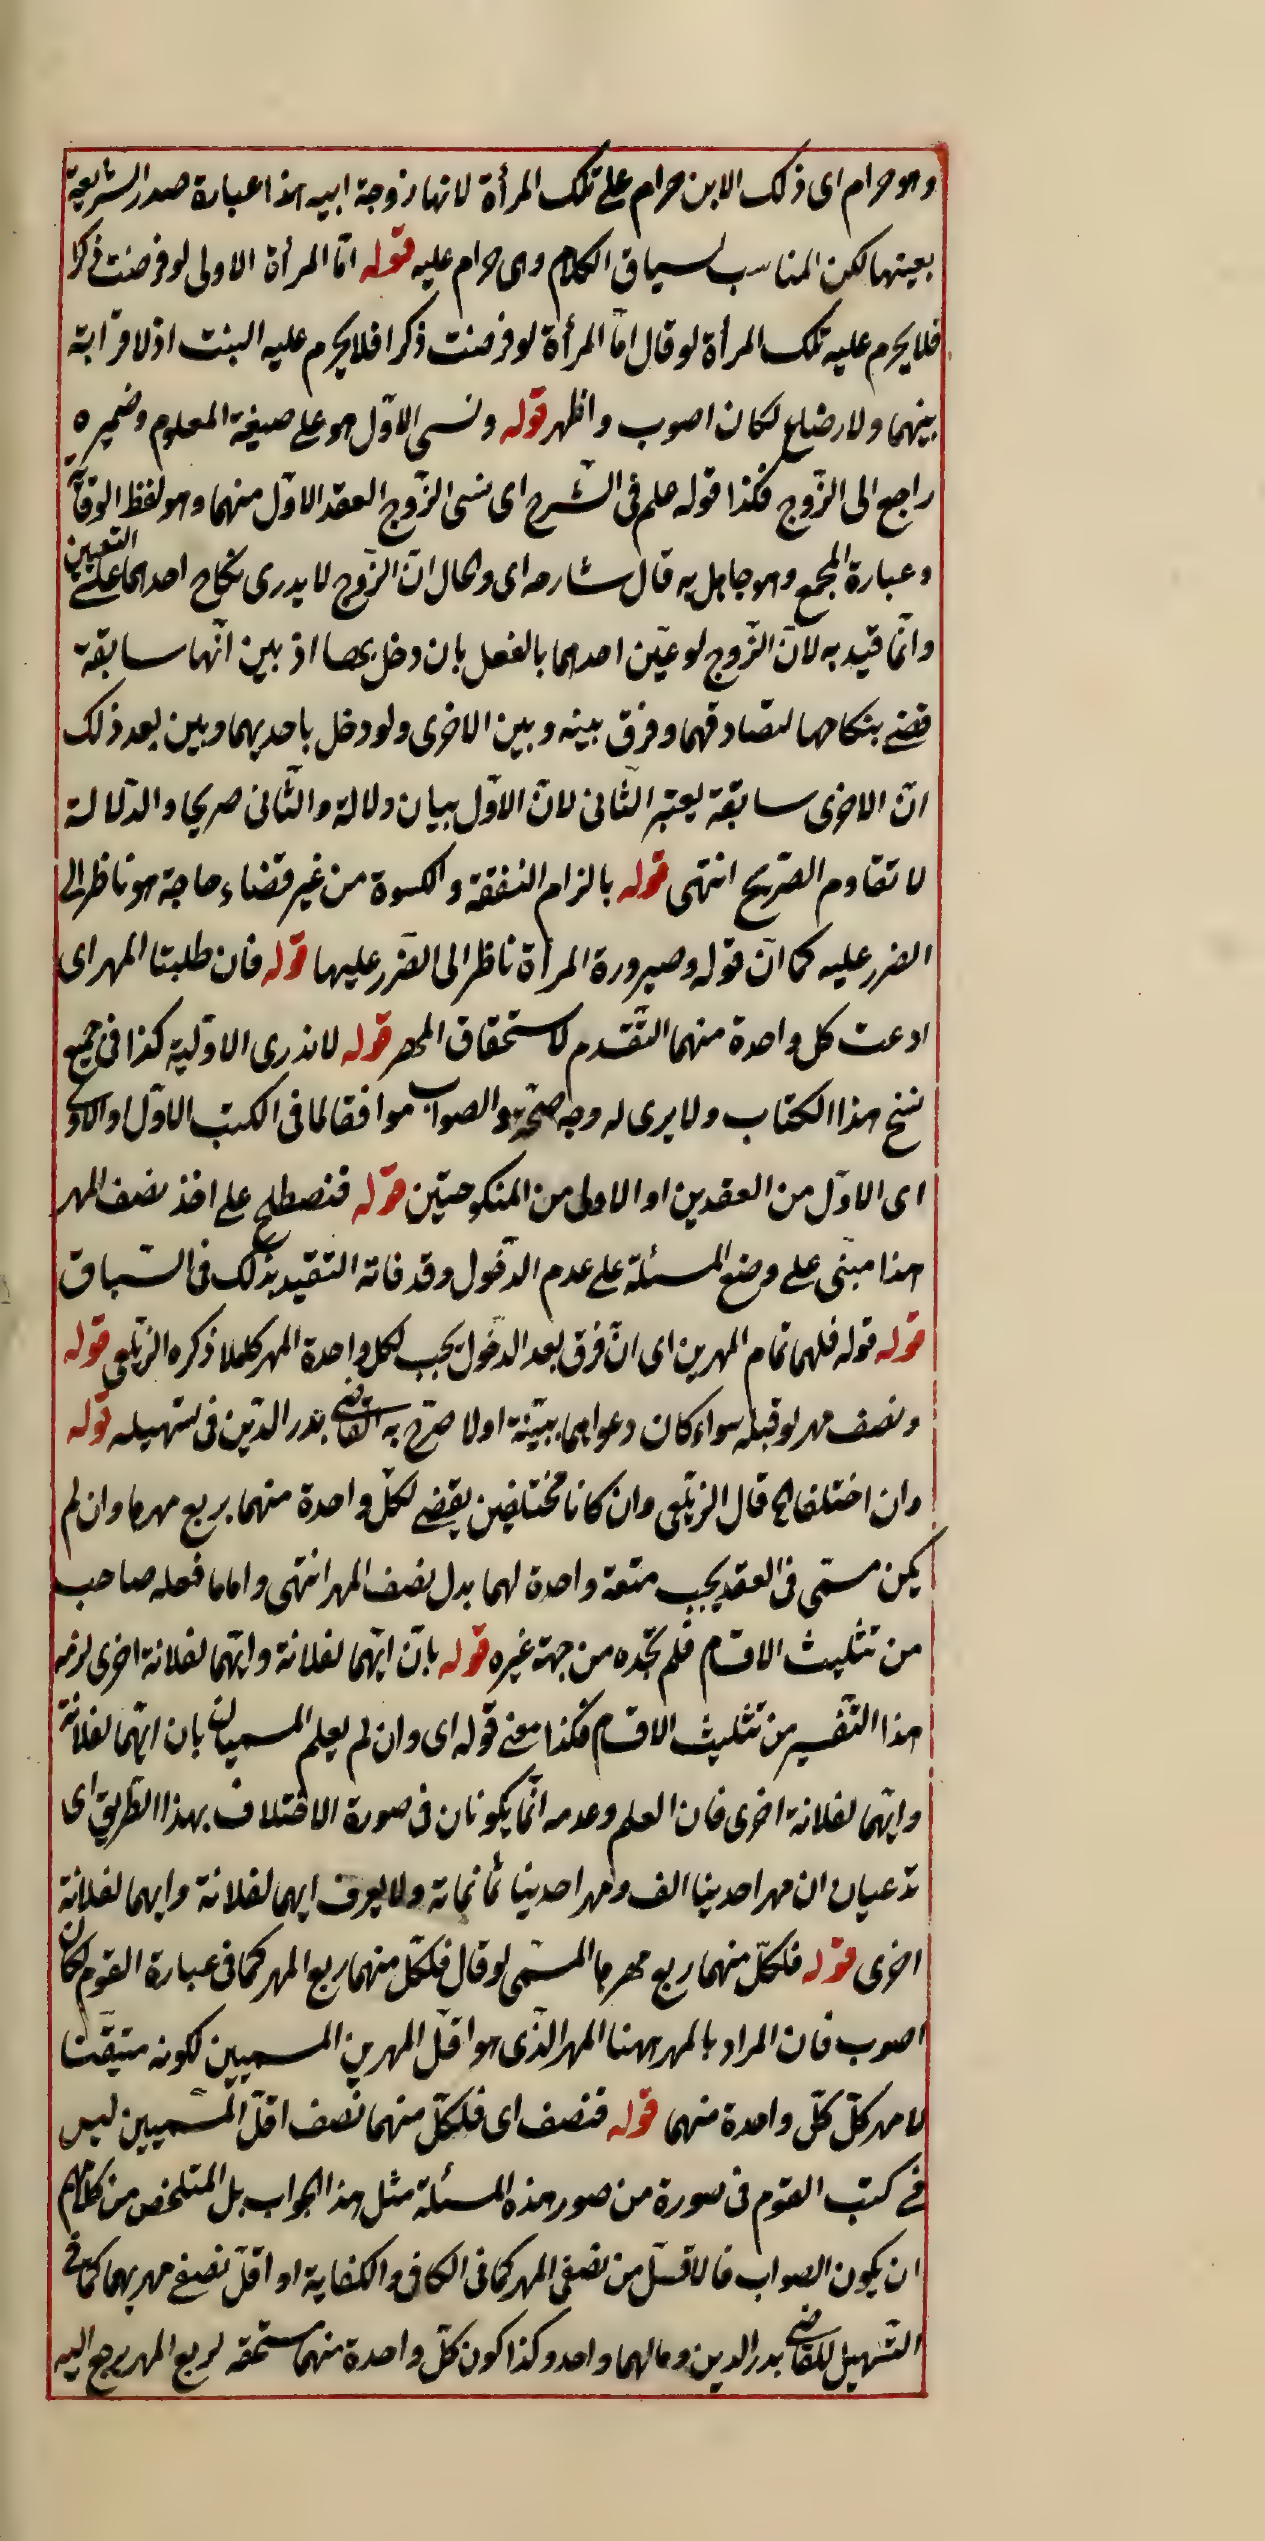 وهو حرام اى ذلك الابن حرام على تلك المرأة لانها زوجة ابيه هذا عبارة صدر الشريعة
بعينها لكن المناسب لسياق الكلام وهى حرام عليه قوله امّا المرأة الاولى لو فرضت ذكرا
فلا يحرم عليه تلك المرأة لو قال امّا المرأة لو فرضت ذكرا فلا يحرم عليه البنت اذ لا قرابة
بينهما ولا رضاع لكان اصوب واظهر قوله ونسى الاوّل هو على صيغة المعلوم وضميره
راجع الى الزّوج فكذا قوله علم فى الشّرح اى نسى الزّوج العقد الاوّل منهما وهو لفظ الوقاية
وعبارة المجمع وهو جاهل به قال شارحه اى والحال انّ الزّوج لا يدرى نكاح احداهما على التعيين
وانّما قيّد به لانّ الزّوج لو عيّن احداهما بالفعل بان دخل بها اذ بين انّها سابقة
قضى بنكاحها لتصادقهما وفرق بينه وبين الاخرى ولو دخل باحديهما وبين بعد ذلك
انّ الاخرى سابقة يعتبر الثّانى لانّ الاوّل بيان دلالة والثّانى صريحا والدّلالة
لا تقاوم الصّريح انتهى قوله بالزام النفقة والكسوة من غير قضاء حاجة هو ناظر الى
الضرر عليه كما انّ قوله وصيرورة المرأة ناظر الى الضّرر عليها قوله فان طلبتا المهر اى
ادعت كل واحدة منهما التّقدم لاستحقاق المهر قوله لا ندرى الاوّلية كذا فى جميع
نسخ هذا الكتاب ولا يرى له وجه صحّة والصواب موافقا لما فى الكتب الاوّل او الاولى
اى الاوّل من العقدين او الاولى من المنكوحتين قوله فنصطلح على اخذ نصف المهر
هذا مبنى على وضع المسئلة على عدم الدّخول وقد فاته التقيد بذلك فى السّباق
قوله قوله فلهما تمام المهرين اى انّ فرق بعد الدخول يجب لكل واحدة المهر كاملا ذكره الزيلعى قوله
ونصف مهر لو قبله سواء كان دعواهما ببيّنة اولا صرّح به القاضى بدر الدّين فى تسهيله قوله
وان اختلفا الخ قال الزيلعى وان كانا مختلفين يقضى لكلّ واحدة منهما بربع مهرها وان لم
يكن مسمّى فى العقد يجب متعة واحدة لهما بدل نصف المهر انتهى واما ما فعله صاحب
من تثليث الاقسام فلم نجّده من جهة غيره قوله بانّ ايّهما لفلانة وايّهما لفلانة اخرى لزمه
هذا التّفسير من تثليث الاقسام فكذا معنى قوله اى وان لم يعلم المسميان بان ايّهما لفلانة
وايّهما لفلانة اخرى فان العلم وعدمه انّما يكونان فى صورة الاختلاف بهذا الطّريق اى
تدعيان ان مهر احدينا الف ومهر احدينا ثمانمائة ولا يعرف ايهما لفلانة وايهما لفلانة
اخرى قوله فلكلّ منهما ربع مهرها المسمّى لو قال فلكلّ منهما ربع المهر كما فى عبارة القوم لكان
اصوب فان المراد بالمهر ههنا المهر الذّى هو اقلّ المهرين المسميين لكونه متيقّنا
لا مهر كلّ كلّ واحدة منهما قوله فنصف اى فلكلّ منهما نصف اقلّ المسّميين ليس
فى كتب القوم فى صورة من صور هذه المسئلة مثل هذا الجواب بل المتلخص من كلامهم
ان يكون الصواب فالاقلّ من نصفى المهر كما فى الكافى والكفاية او اقلّ نصفى مهريهما كما فى
التّسهيل للقاضى بدر الدين ومالهما واحد وكذا كون كلّ واحدة منهما مستحقه لربع المهر يرجع اليه